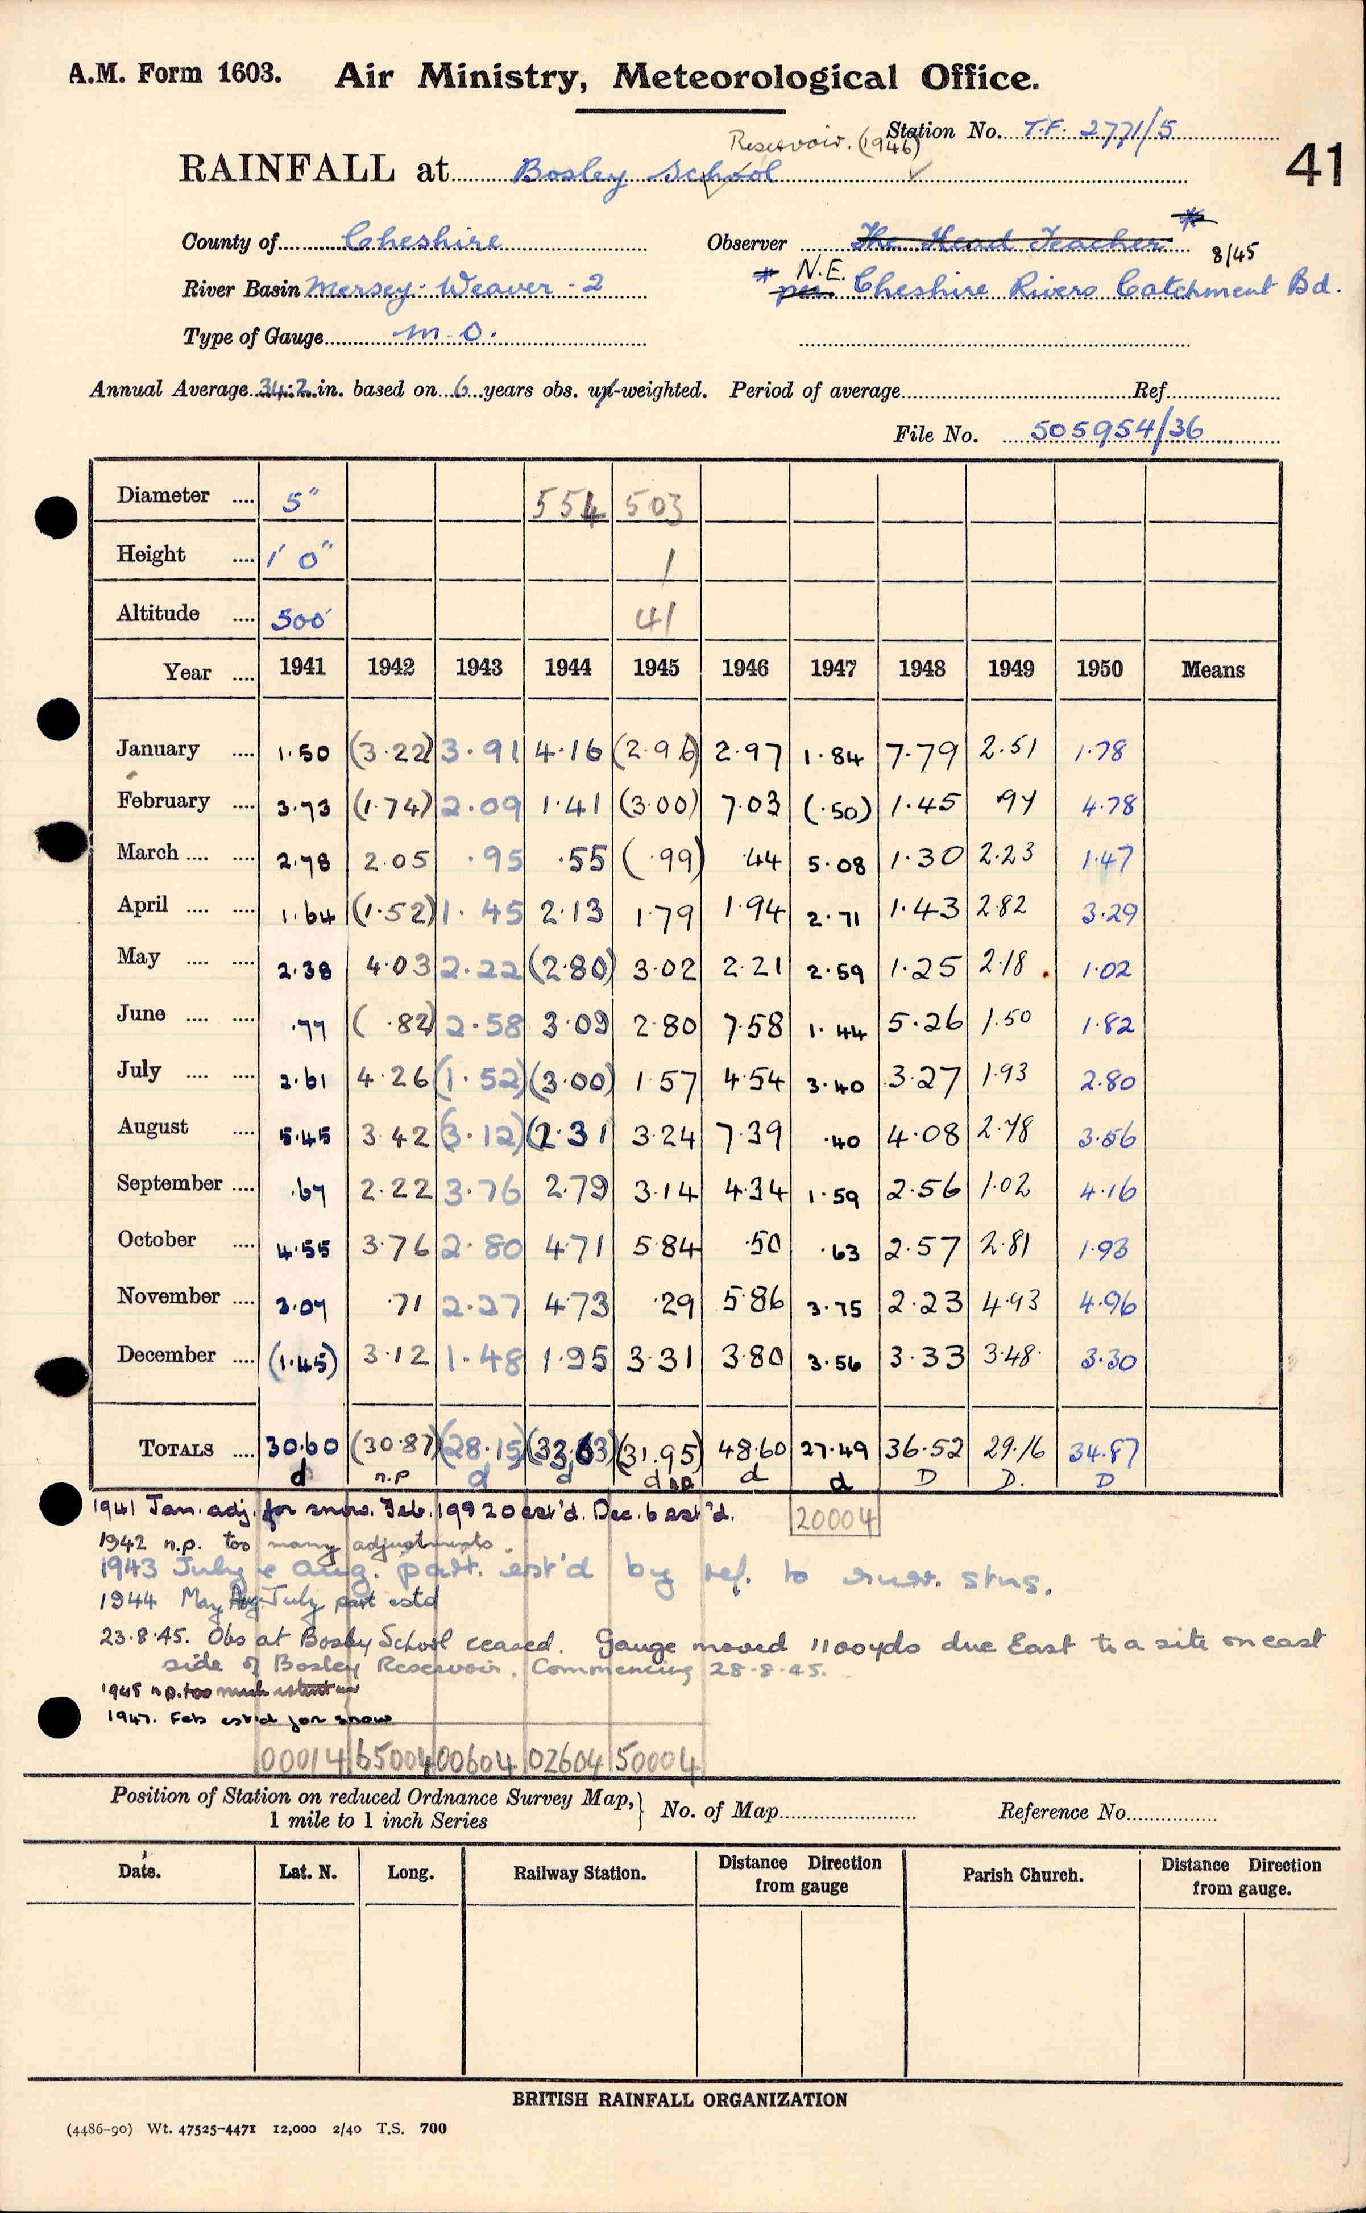 A.M. Form 1603. Air Ministry, Meteorological Office.
Station No. T.F. 2771/5
Reservoir. (1946)
RAINFALL at Bosley School
41
County of Cheshire Observer The Head Teacher *
8/45
River Basin Mersey-Weaver-2 * per N.E. Cheshire Rivers Catchment Bd.
Type of Gauge M.O.
Annual Average 34.2 in. based on 6 years obs. un-weighted. Period of average Ref.
File No. 505954/36
Diameter .... 5" 554 503
Height .... 1' 0" 1
Altitude .... 500' 41
Year .... 1941 1942 1943 1944 1945 1946 1947 1948 1949 1950 Means
January .... 1.50 (3.22) 3.91 4.16 (2.96) 2.97 1.84 7.79 2.51 1.78
February .... 3.73 (1.74) 2.09 1.41 (3.00) 7.03 (.50) 1.45 .97 4.78
March .... .... 2.78 2.05 .95 .55 (.99) .44 5.08 1.30 2.23 1.47
April .... .... 1.64 (1.52) 1.45 2.13 1.79 1.94 2.71 1.43 2.82 3.29
May .... .... 2.38 4.03 2.22 (2.80) 3.02 2.21 2.59 1.25 2.18 1.02
June .... .... .77 (.82) 2.58 3.09 2.80 7.58 1.44 5.26 1.50 1.82
July .... .... 2.61 4.26 (1.52) (3.00) 1.57 4.54 3.40 3.27 1.93 2.80
August .... 5.45 3.42 (3.12) (2.31 3.24 7.39 .40 4.08 2.78 3.56
September .... .67 2.22 3.76 2.79 3.14 4.34 1.59 2.56 1.02 4.16
October .... 4.55 3.76 2.80 4.71 5.84 .50 .63 2.57 2.81 1.93
November .... 3.07 .71 2.27 4.73 .29 5.86 3.75 2.23 4.93 4.96
December .... (1.45) 3.12 1.48 1.95 3.31 3.80 3.56 3.33 3.48 3.30
TOTALS .... 30.60 (30.87) (28.15) (33.63) (31.95) 48.60 27.49 36.52 29.16 34.87
d n.p d d d n.p d d D D. D
1941 Jan. adj. for snow. Feb. 19 & 20 est'd. Dec. 6 est'd. 20004
1942 n.p. too many adjustments.
1943 July & Aug. part. est'd by ref. to surr. stns.
1944 May Aug July part estd
23.8.45. Obs at Bosley School ceased. Gauge moved 1100yds due East to a site on east
side of Bosley Reservoir. Commencing 28.8.45.
1945 n.p. too much
1947. Feb est'd for snow
00014 65004 00604 02604 50004
Position of Station on reduced Ordnance Survey Map, 1 mile to 1 inch Series } No. of Map Reference No.
Date. Lat. N. Long. Railway Station. Distance Direction from gauge Parish Church. Distance Direction from gauge.
BRITISH RAINFALL ORGANIZATION
(4486-90) Wt. 47525-4471 12,000 2/40 T.S. 700